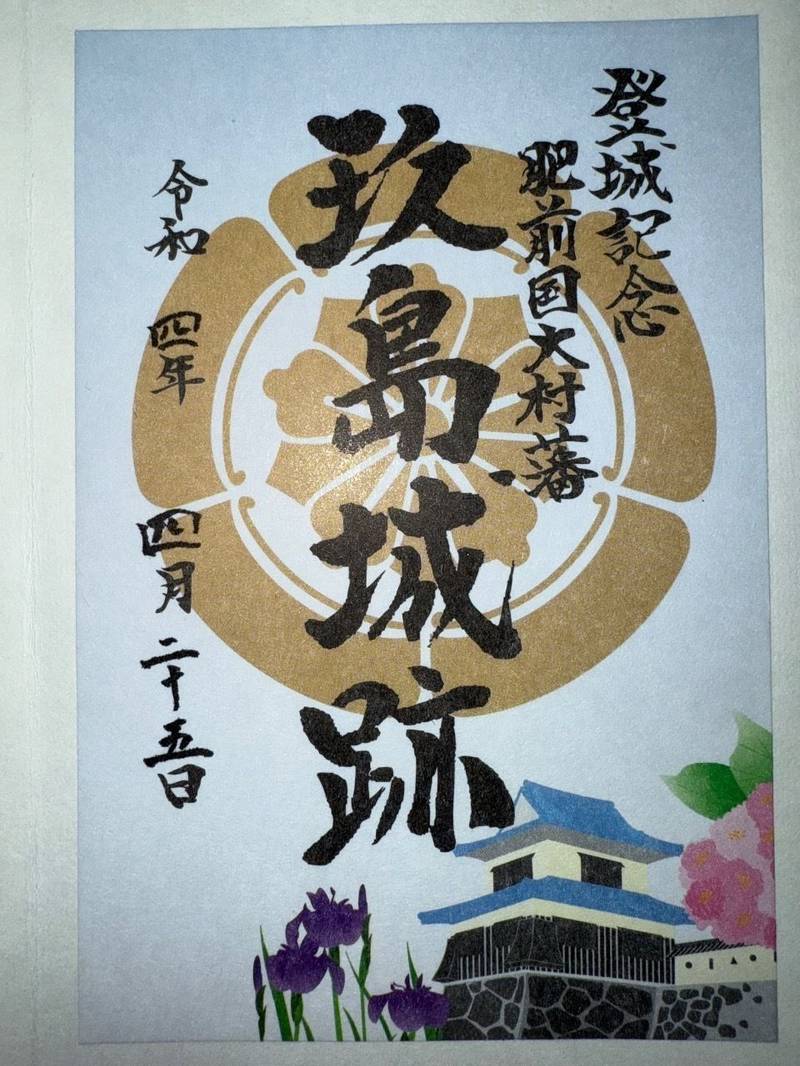 登城記念
肥前国大村藩
玖島城跡
令和四年四月二十五日